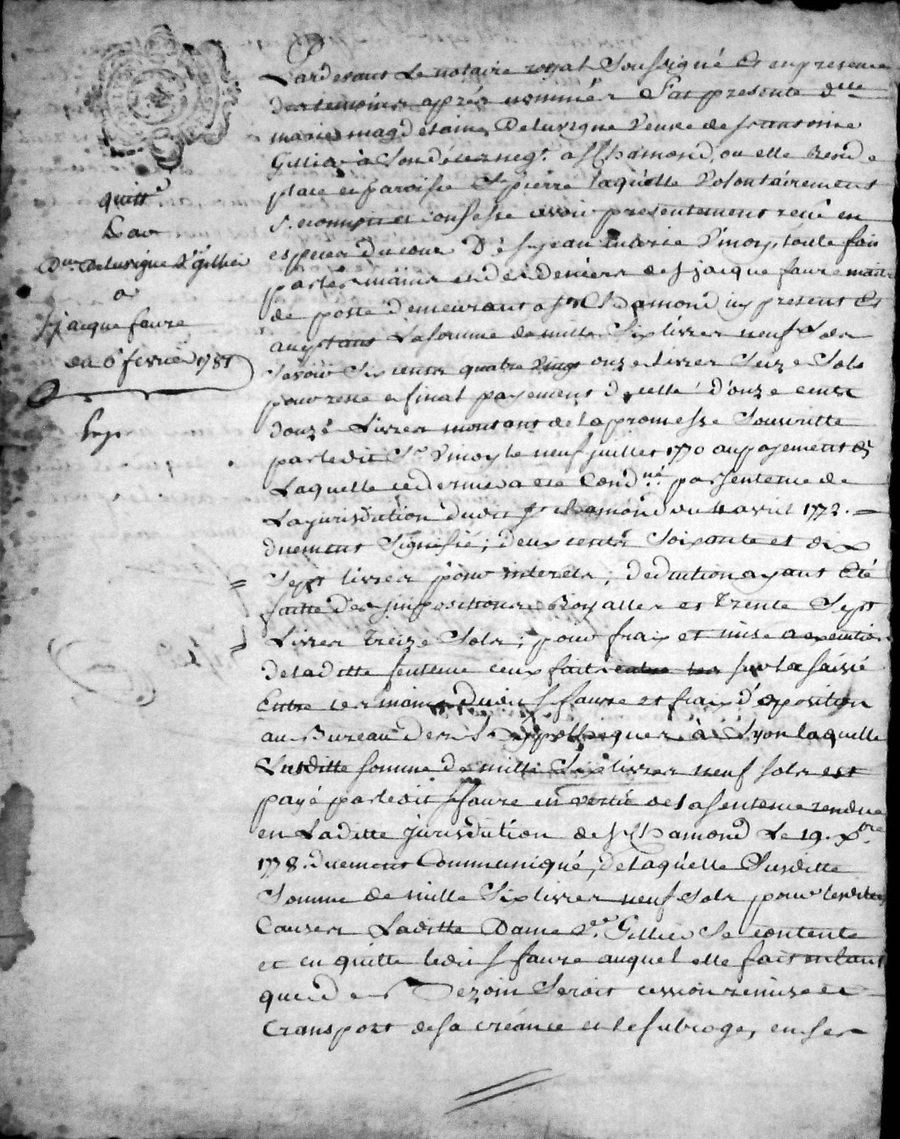 quitt.
Par
Delle Deluvigne Vve Gillier
a
Sr jacque faure
du 6 fevrier 1781
Pardevant Le notaire royal Soussigné Et en presence
des temoins après nommés Fut presente dlle
marie magdelaine Deluvigne Veuve de françoise
à Son décès negt. a St Chamond, ou elle Reside
place et paroisse St pierre laquelle Volontairement
confesse avoir presentement receu en
especes du cour De Sr jean Vincy, toute fois
par les mains et des deniers de Sr jacque faure maitre
de poste demeurant a St Chamond icy present Et
acceptant La somme de mille Six livres neuf sols
Savoir Six cents quatre vingt onze Livres Seize Sols
pour reste et final payement de celle d'onze cents
douze Livres montant de la promesse Souscritte
par ledit Sr Vincy le neuf juillet 1770 au payement de
Laquelle ce dernier a eté Condné. par Sentence de
La jurisdiction dudit St Chamond du avril 1772.
duement Signifié; deux cents Soixante et dix
Sept livres pour interets; deduction ayant Eté
faitte des impositions Royalles et Trente Sept
Livres Treize Sols; pour fraix et mise a execution
de laditte Sentence ceux faits sur la Saisie
Entre les mains dudit Sr faure et fraix d'oposition
au Bureau des hypotheques à Lyon laquelle
Susditte somme de mille Six livres neuf sols est
payé par ledit Sr faure en vertu de la sentence rendue
en Laditte jurisdiction de St Chamond Le 19. Xbre
1778. duement Communiqué, de laquelle Susditte
Somme de mille Six livres neuf Sols pour lesdittes
Causes Laditte Dame Vve. Gillier Se contente
et en quitte ledit Sr faure auquel elle fait en tant
que de Bezoin Seroit cession remise et
Transport de sa créance et le subroge, en ses